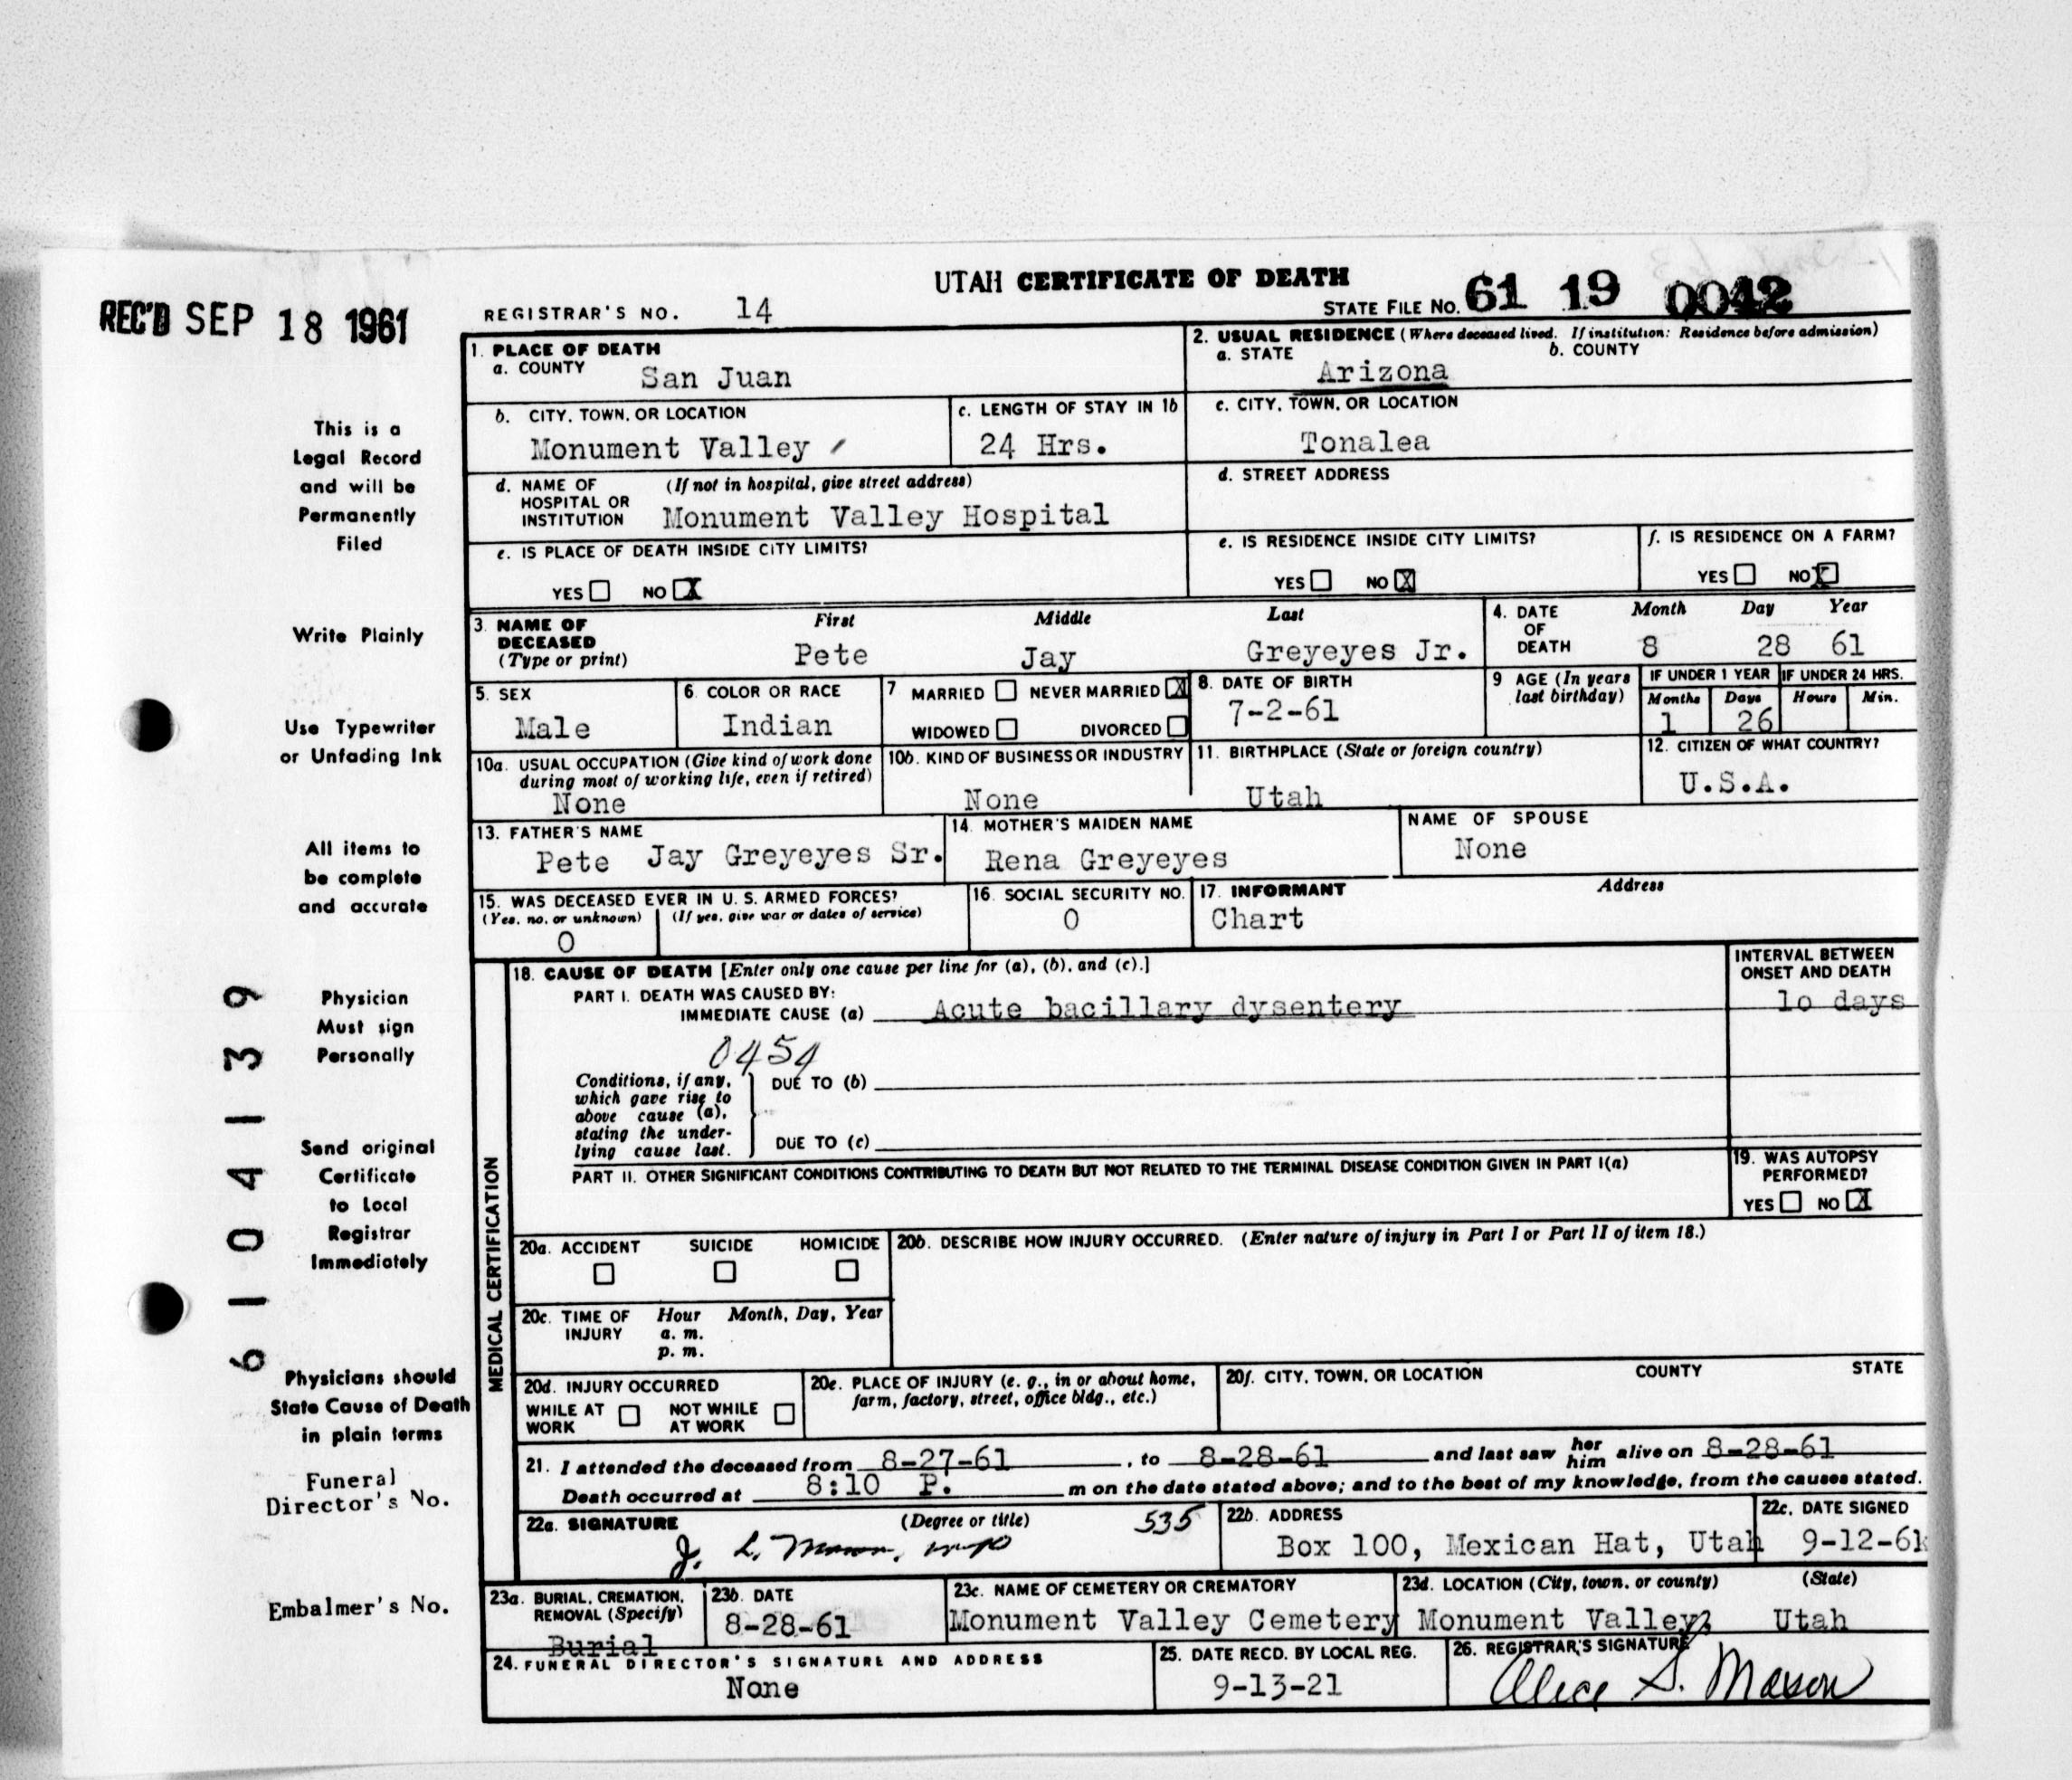 UTAH CERTIFICATE OF DEATH
REC'D SEP 18 1961
REGISTRAR'S NO. 14
STATE FILE NO. 61 19 0042
This is a
Legal Record
and will be
Permanently
Filed
Write Plainly
Use Typewriter
or Unfading Ink
All items to
be complete
and accurate
Physician
Must sign
Personally
Send original
Certificate
to Local
Registrar
Immediately
Physicians should
State Cause of Death
in plain terms
Funeral
Director's No.
Embalmer's No.
61 04 1139
1. PLACE OF DEATH
a. COUNTY San Juan
2. USUAL RESIDENCE (Where deceased lived. If institution: Residence before admission)
a. STATE Arizona b. COUNTY
b. CITY, TOWN, OR LOCATION Monument Valley
c. LENGTH OF STAY IN 1b 24 Hrs.
c. CITY, TOWN, OR LOCATION Tonalea
d. NAME OF HOSPITAL OR INSTITUTION (If not in hospital, give street address) Monument Valley Hospital
d. STREET ADDRESS
e. IS PLACE OF DEATH INSIDE CITY LIMITS?
YES NO X
e. IS RESIDENCE INSIDE CITY LIMITS?
YES NO X
f. IS RESIDENCE ON A FARM?
YES NO X
3. NAME OF DECEASED (Type or print) First Middle Last
Pete Jay Greyeyes Jr.
4. DATE OF DEATH Month Day Year
8 28 61
5. SEX Male
6. COLOR OR RACE Indian
7 MARRIED NEVER MARRIED X
WIDOWED DIVORCED
8. DATE OF BIRTH 7-2-61
9 AGE (In years last birthday)
IF UNDER 1 YEAR IF UNDER 24 HRS.
Months Days Hours Min.
1 26
10a. USUAL OCCUPATION (Give kind of work done during most of working life, even if retired) None
10b. KIND OF BUSINESS OR INDUSTRY None
11. BIRTHPLACE (State or foreign country) Utah
12. CITIZEN OF WHAT COUNTRY? U.S.A.
13. FATHER'S NAME Pete Jay Greyeyes Sr.
14. MOTHER'S MAIDEN NAME Rena Greyeyes
NAME OF SPOUSE None
15. WAS DECEASED EVER IN U. S. ARMED FORCES?
(Yes, no, or unknown) (If yes, give war or dates of service)
0
16. SOCIAL SECURITY NO. 0
17. INFORMANT Address
Chart
MEDICAL CERTIFICATION
18. CAUSE OF DEATH [Enter only one cause per line for (a), (b), and (c).]
INTERVAL BETWEEN ONSET AND DEATH
PART I. DEATH WAS CAUSED BY:
IMMEDIATE CAUSE (a) Acute bacillary dysentery 10 days
0454
Conditions, if any, which gave rise to above cause (a), stating the underlying cause last.
DUE TO (b)
DUE TO (c)
PART II. OTHER SIGNIFICANT CONDITIONS CONTRIBUTING TO DEATH BUT NOT RELATED TO THE TERMINAL DISEASE CONDITION GIVEN IN PART I(a)
19. WAS AUTOPSY PERFORMED?
YES NO X
20a. ACCIDENT SUICIDE HOMICIDE
20b. DESCRIBE HOW INJURY OCCURRED. (Enter nature of injury in Part I or Part II of item 18.)
20c. TIME OF INJURY Hour a. m. p. m. Month, Day, Year
20d. INJURY OCCURRED
WHILE AT WORK NOT WHILE AT WORK
20e. PLACE OF INJURY (e. g., in or about home, farm, factory, street, office bldg., etc.)
20f. CITY, TOWN, OR LOCATION COUNTY STATE
21. I attended the deceased from 8-27-61, to 8-28-61 and last saw her him alive on 8-28-61
Death occurred at 8:10 P. m on the date stated above; and to the best of my knowledge, from the causes stated.
22a. SIGNATURE (Degree or title) 535
J. L. Mason, MD
22b. ADDRESS Box 100, Mexican Hat, Utah
22c. DATE SIGNED 9-12-61
23a. BURIAL, CREMATION, REMOVAL (Specify) Burial
23b. DATE 8-28-61
23c. NAME OF CEMETERY OR CREMATORY Monument Valley Cemetery
23d. LOCATION (City, town, or county) (State) Monument Valley, Utah
24. FUNERAL DIRECTOR'S SIGNATURE AND ADDRESS None
25. DATE RECD. BY LOCAL REG. 9-13-21
26. REGISTRAR'S SIGNATURE Alice S. Mason